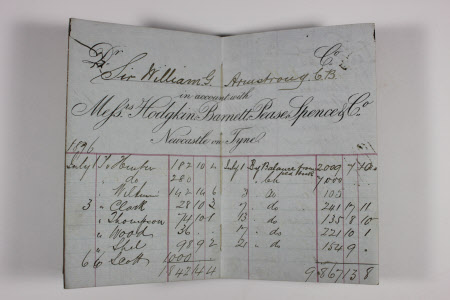 Dr Sir William G. Armstrong CB Cr
in account with
Messrs Hodgkin Barnett, Pease, Spence & Co
Newcastle on Tyne
July 1 To Hunter 182 10 July 1 By Balance from pass book 2000
" Do 200
" 142 14 6 3
3 " Clark 28 10 3 " do 241 17 11
" Thompson 74 10 1 13 " do 135 8 10
" Wood 36 " do 221 10 1
" 98 9 2 21 " do 154 9
6 " Scott 1000
1842 4 4 9867 13 8